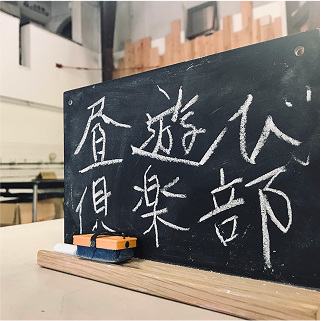 昼遊び
倶楽部